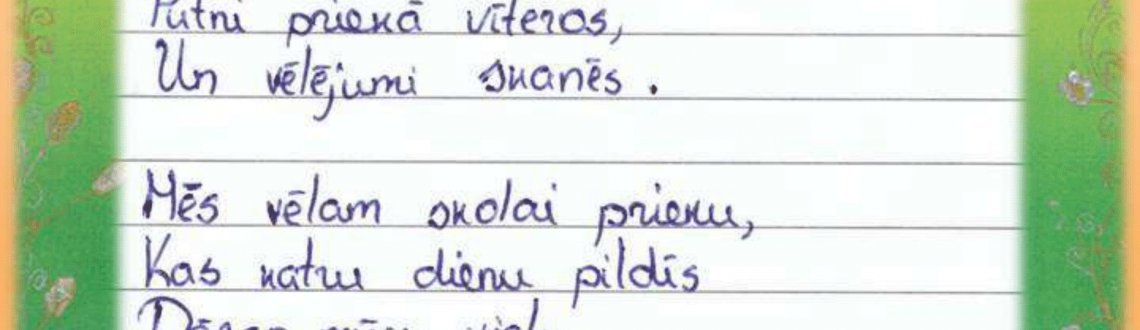 Putni priekā vīteros,
Un vēlējumi skanēs.
Mēs vēlam skolai prieku,
Kas katru dienu pildīs